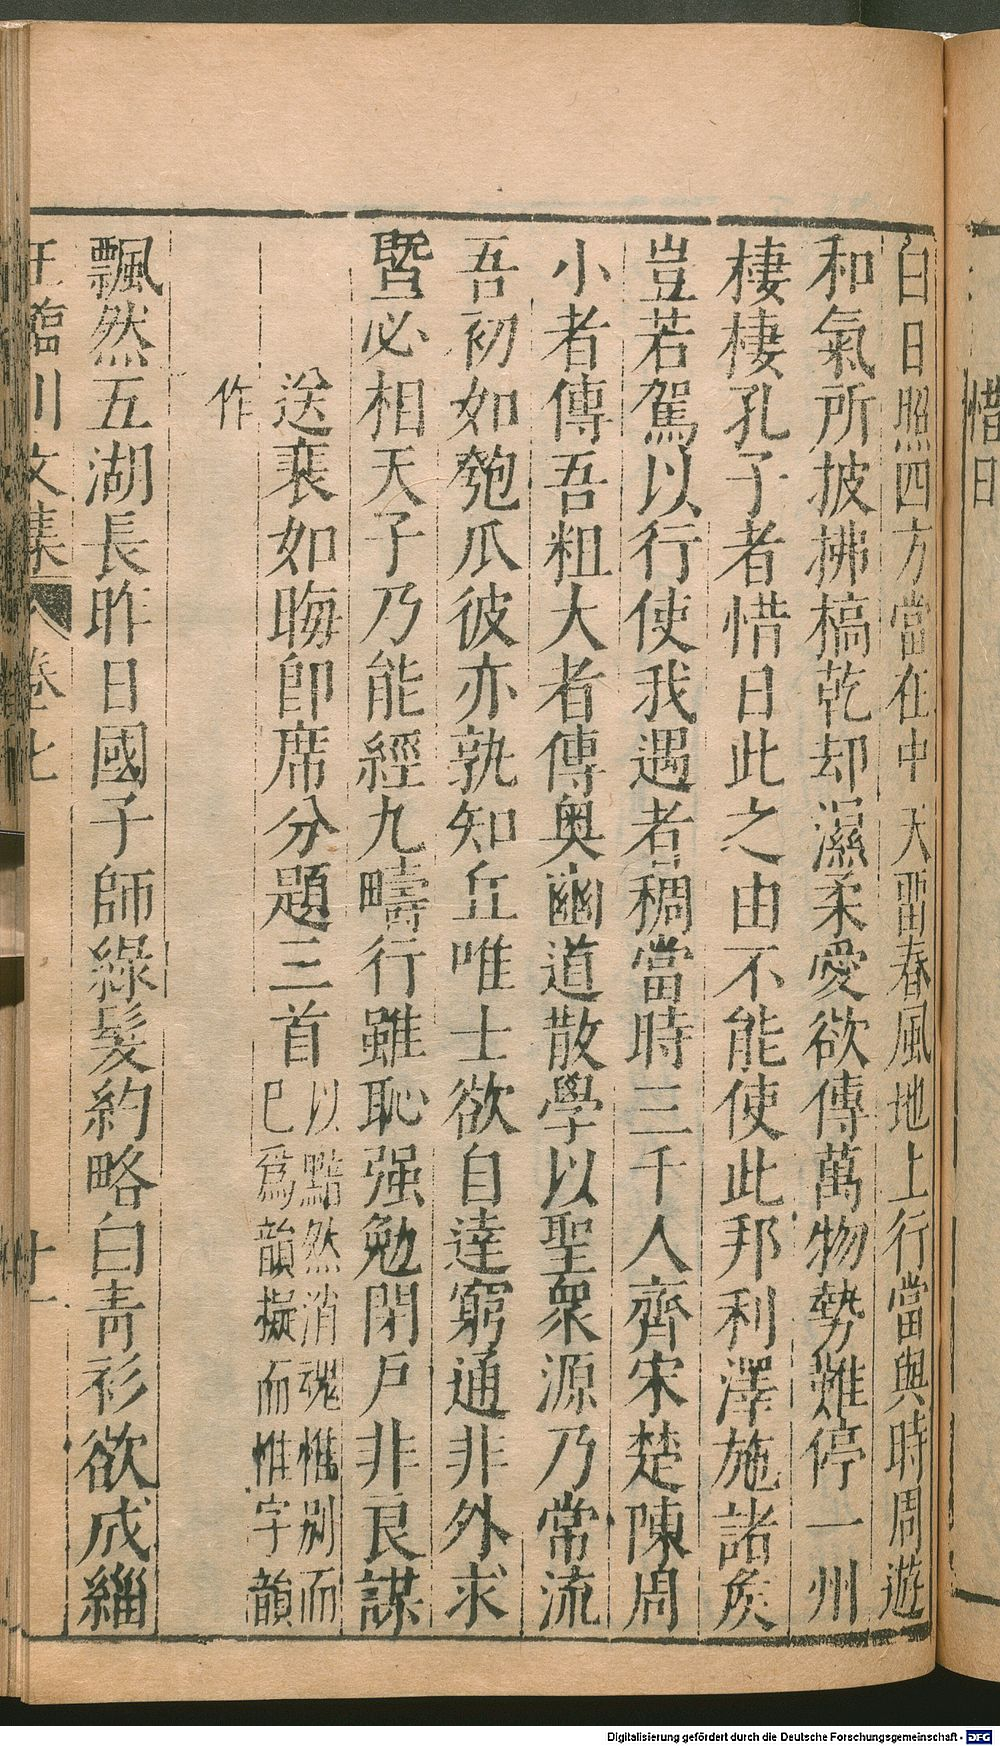 惜日
白日照四方當在中天畱春風地上行當與時周遊
和氣所披拂槁乾却濕柔愛欲傳萬物勢難停一州
棲棲孔子者惜日此之由不能使此邦利澤施諸矦
豈若駕以行使我遇者稠當時三千人齊宋楚陳周
小者傳吾粗大者傳奧幽道散學以聖衆源乃常流
吾初如匏瓜彼亦孰知丘唯士欲自達窮通非外求
曁必相天子乃能經九疇行雖恥强勉閉戶非良謀
送裴如晦卽席分題三首以黯然消魂惟別而
已爲韻擬而惟字韻
作
飄然五湖長昨日國子師綠髮約略白青衫欲成緇
王臨川文集 卷七 十一
Digitalisierung gefördert durch die Deutsche Forschungsgemeinschaft - DFG